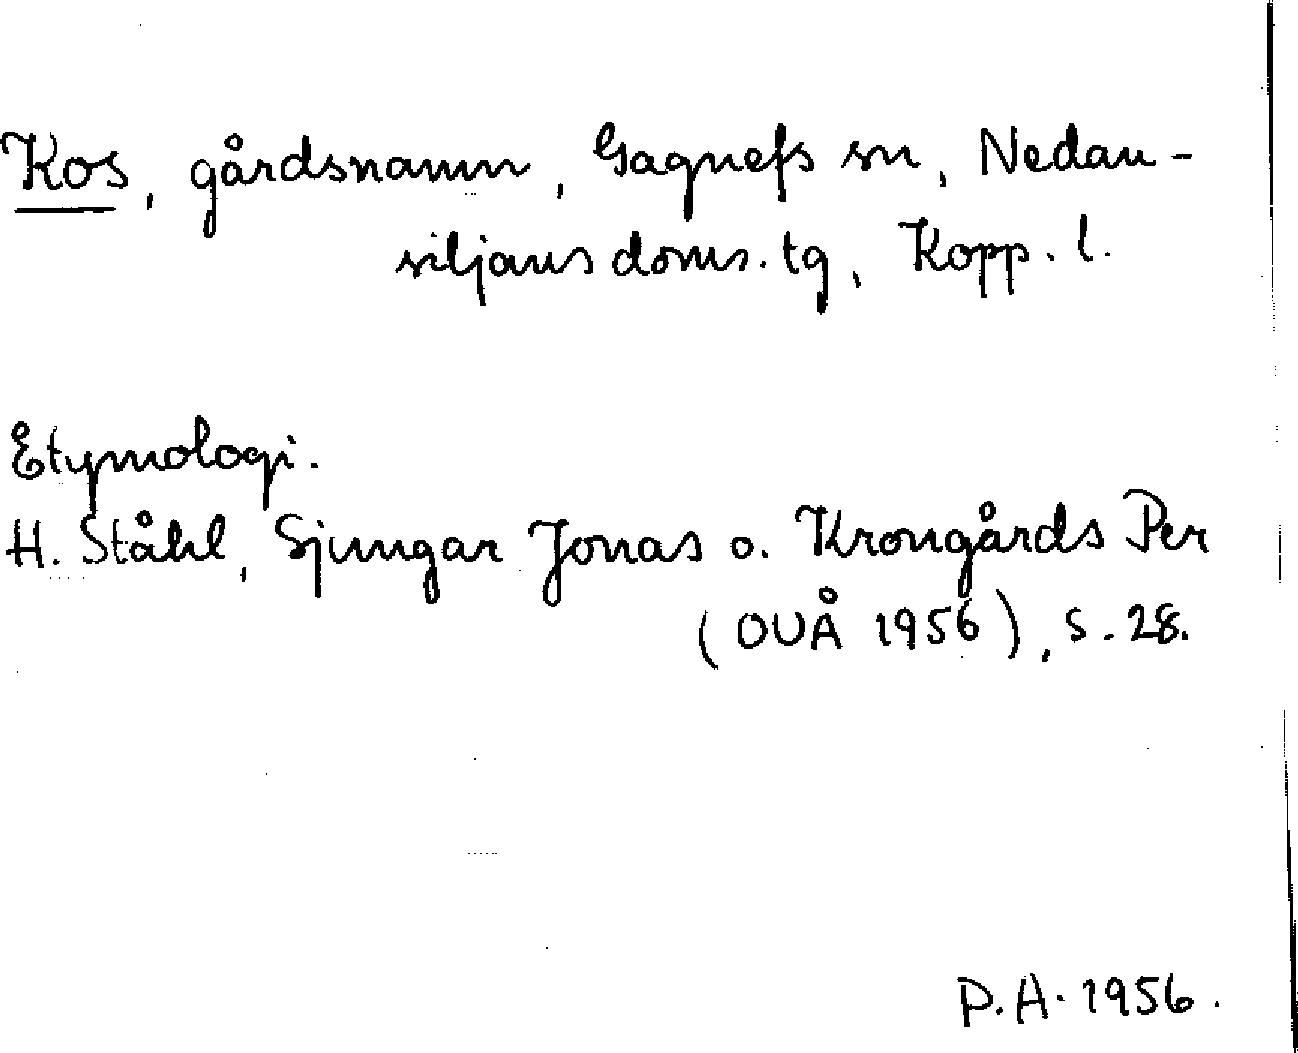 Kos, gårdsnamn, Gagnefs sn, Nedan-
siljans doms. tg, Kopp. l.
Etymologi.
H. Ståhl, Sjungar Jonas o. Krongårds Per
(OUÅ 1956), s. 28.
P.A. 1956.